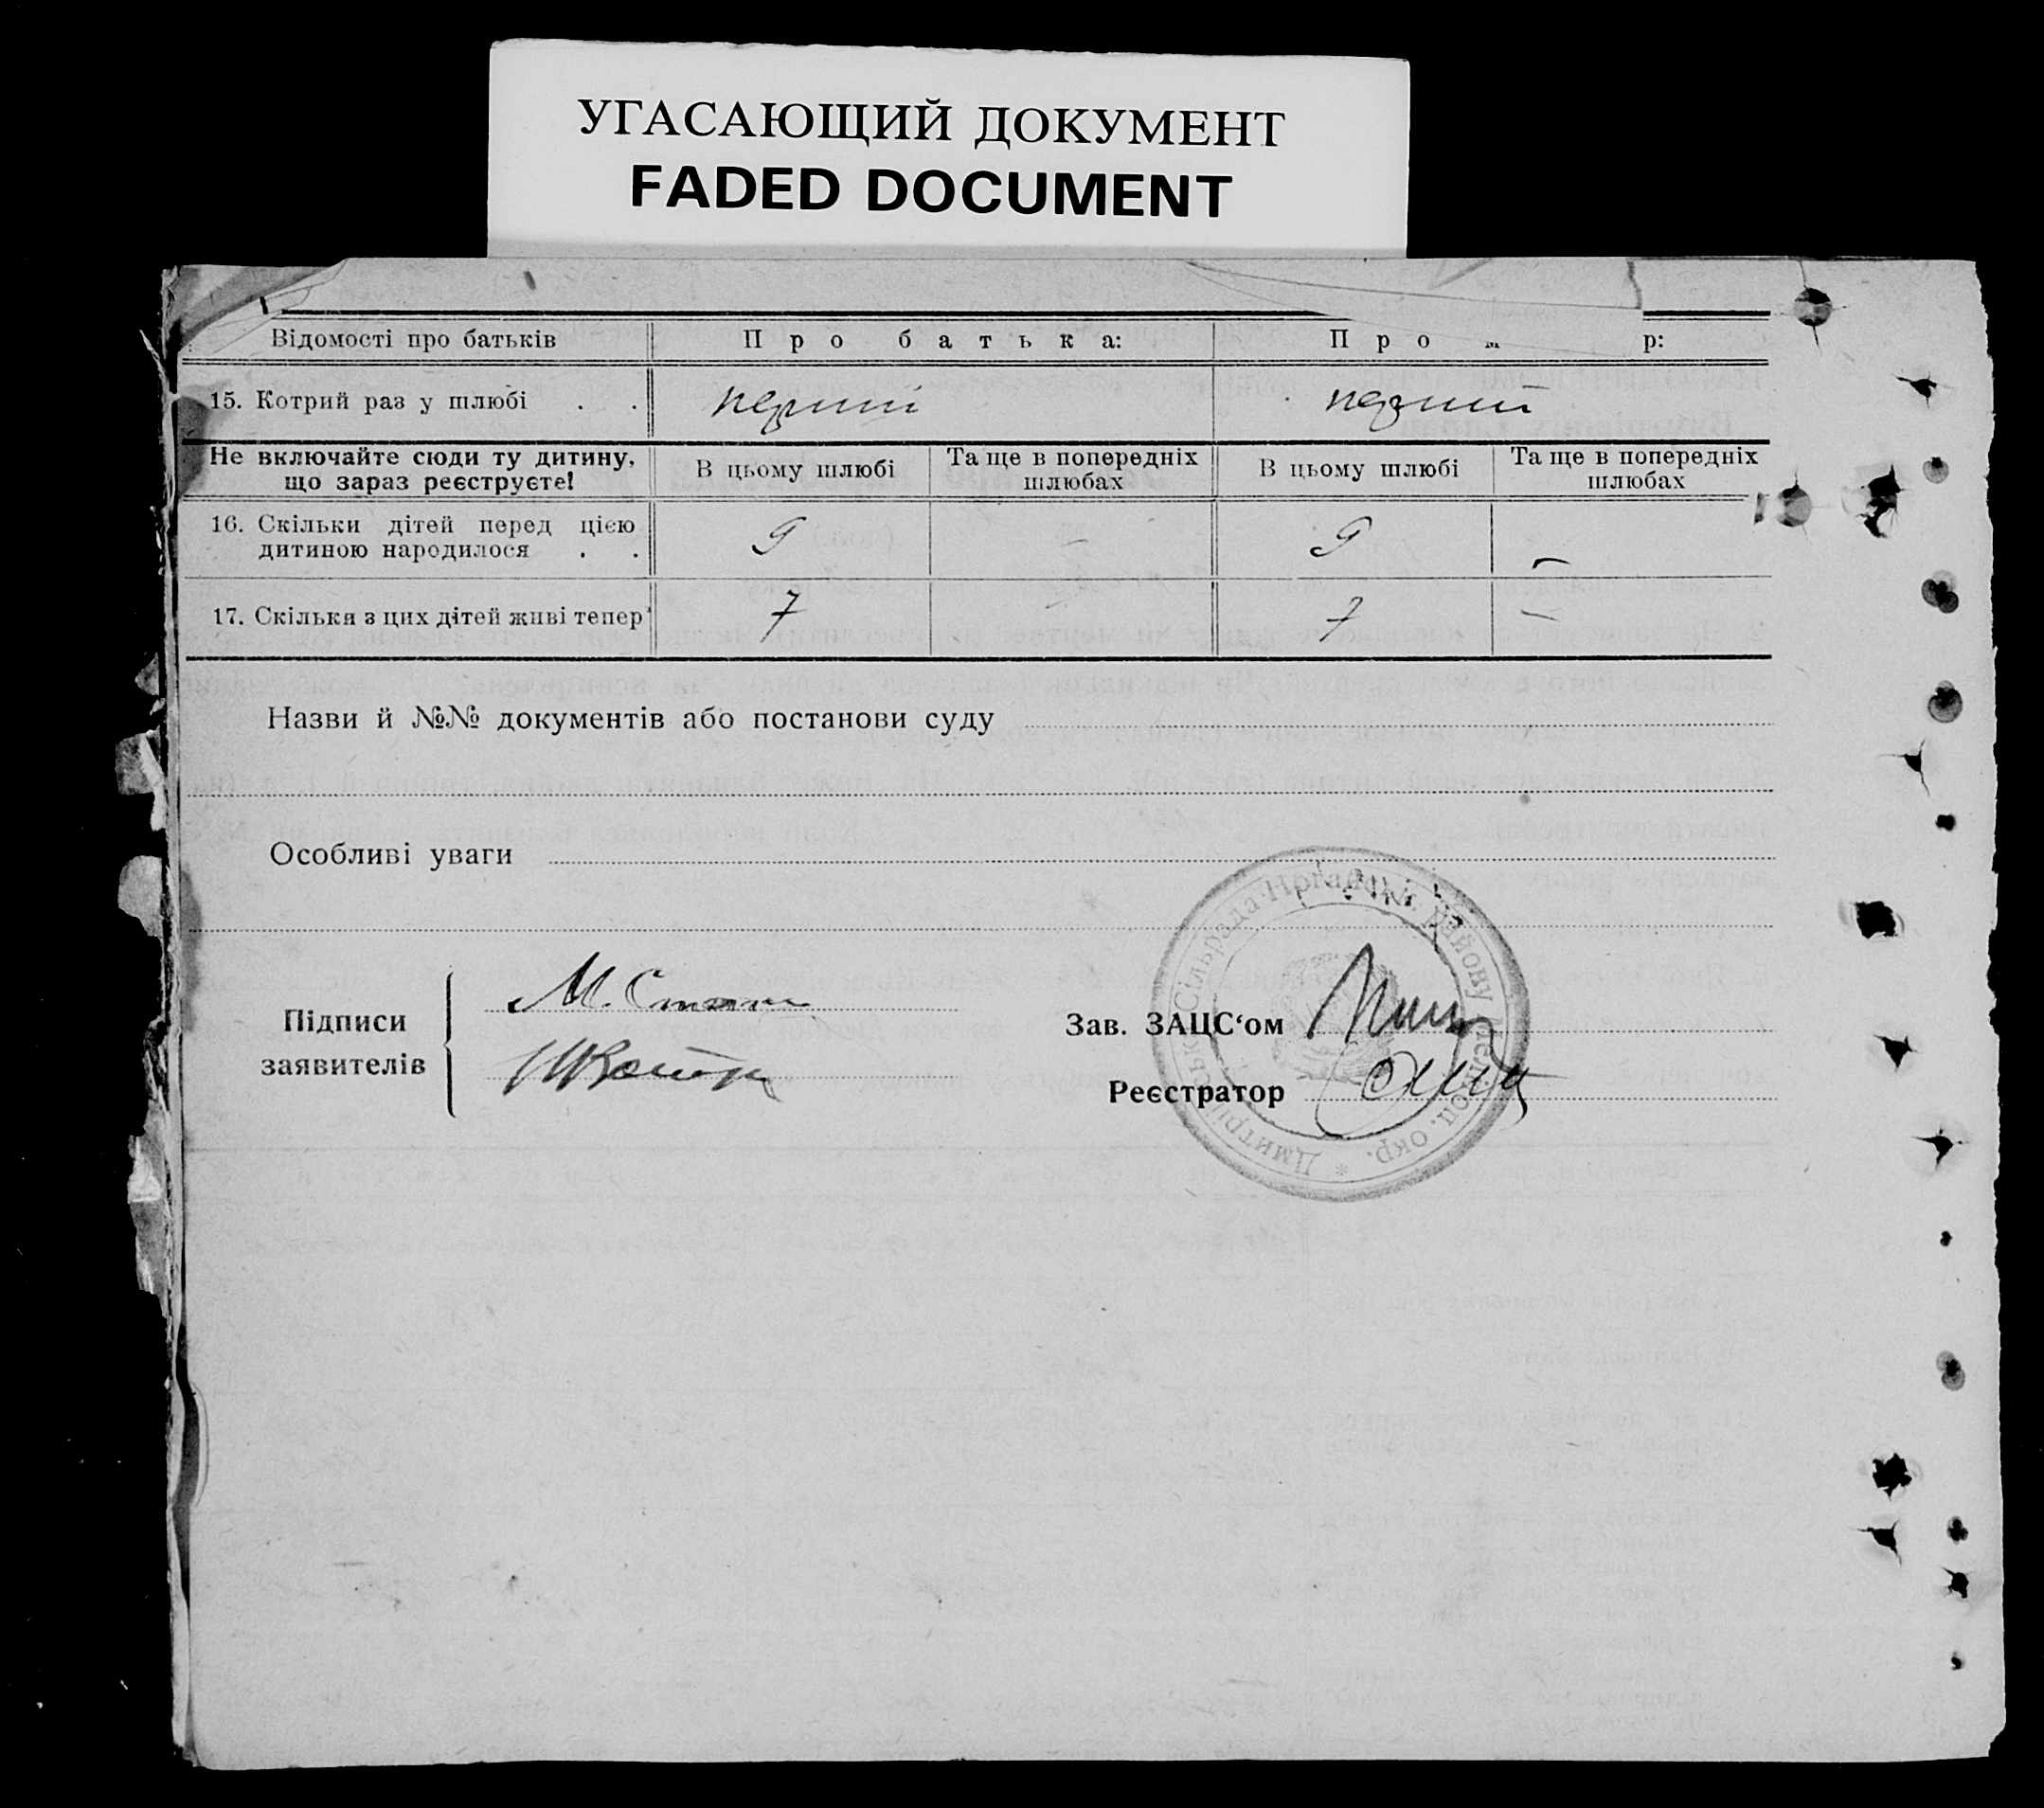 УГАСАЮЩИЙ ДОКУМЕНТ
FADED DOCUMENT
Відомості про батьків Про батька: Про р:
15. Котрий раз у шлюбі . . перший перший
Не включайте сюди ту дитину, що зараз реєструєте! В цьому шлюбі Та ще в попередніх шлюбах В цьому шлюбі Та ще в попередніх шлюбах
16. Скільки дітей перед цією
дитиною народилося . . 9 — 9 —
17. Скільки з цих дітей живі тепер 7 — 7 —
Назви й №№ документів або постанови суду
Особливі уваги
Підписи
заявителів
М.
Зав. ЗАЦС‘ом
Реєстратор
Сільрада району окр. *